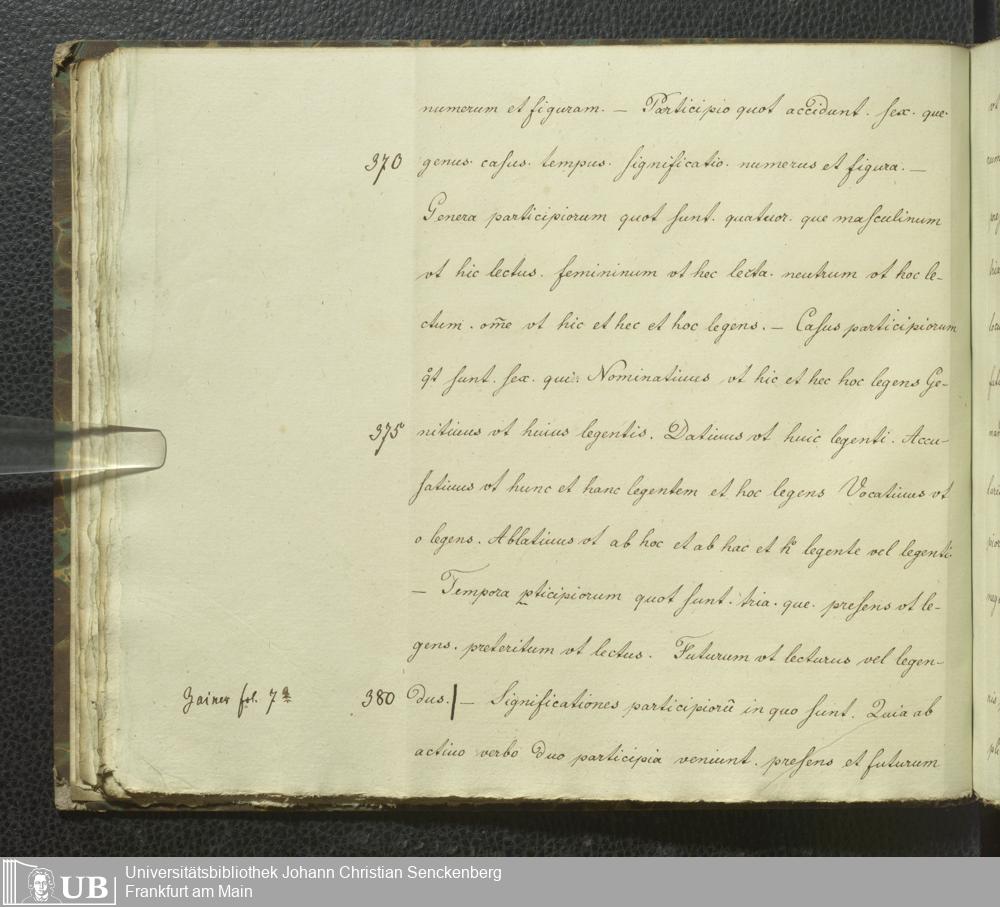 numerum et figuram. — Participio quot accidunt. sex. que.
370 genus. casus. tempus. significatio. numerus et figura. —
Genera participiorum quot sunt. quatuor. que masculinum
vt hic lectus. femininum vt hec lecta. neutrum vt hoc le-
ctum. om̄e vt hic et hec et hoc legens. — Casus participiorum
qͦt sunt. sex. qui. Nominatiuus vt hic et hec hoc legens Ge-
375 nitiuus vt huius legentis. Datiuus vt huic legenti. Accu-
satiuus vt hunc et hanc legentem et hoc legens Vocatiuus vt
o legens. Ablatiuus vt ab hoc et ab hac et hͦ legente vel legenti
— Tempora p̲ticipiorum quot sunt. tria. que. presens vt le-
gens. preteritum vt lectus. Futurum vt lecturus vel legen-
Zainer fol. 7ª 380 dus.| — Significationes participiorū in quo sunt. Quia ab
actiuo verbo duo participia veniunt. presens et futurum
UB
Universitätsbibliothek Johann Christian Senckenberg
Frankfurt am Main